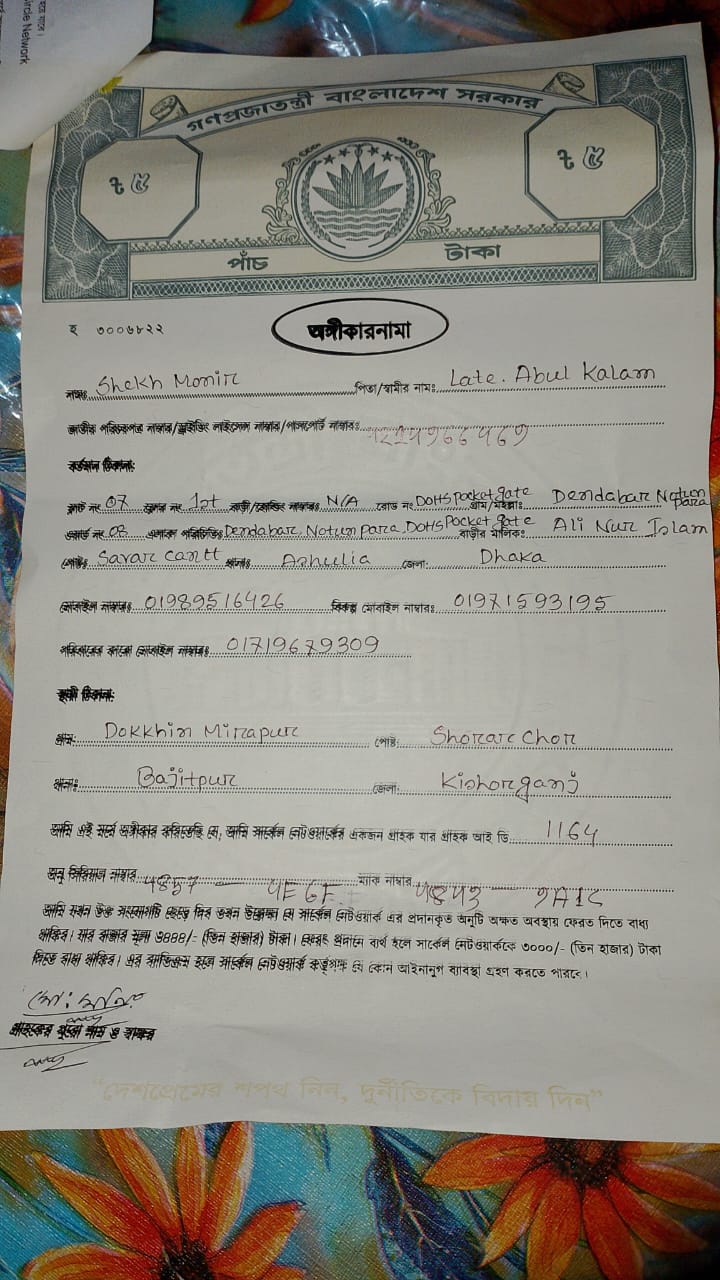 ircle Network
গণপ্রজাতন্ত্রী বাংলাদেশ সরকার
৳ ৫ ৳ ৫
পাঁচ টাকা
হ ৩০০৬৮২২
অঙ্গীকারনামা
নামঃ Shekh Monir পিতা/স্বামীর নাম: Late. Abul Kalam
জাতীয় পরিচয়পত্র নাম্বার/ড্রাইভিং লাইসেন্স নাম্বার/পাসপোর্ট নাম্বারঃ
বর্তমান ঠিকানা:
ফ্লাট নং 07 ফ্লোর নং 1st বাড়ী/হোল্ডিং নাম্বারঃ N/A রোড নং DOHS pocket gate গ্রাম/মহল্লা: Dendabar Notun para
ওয়ার্ড নং 08 এলাকা পরিচিতি: Dendabar. Notun para. DOHS pocket gate বাড়ীর মালিক: Ali Nur Islam
পোষ্টঃ Savar cantt থানাঃ Ashulia জেলা: Dhaka
মোবাইল নাম্বারঃ 01989516426 বিকল্প মোবাইল নাম্বারঃ 01971593195
পরিবারের কারো মোবাইল নাম্বারঃ 01719679309
স্থায়ী ঠিকানা:
গ্রাম: Dokkhin Mirapur পোষ্ট: Shorar Chor
থানাঃ Bajitpur জেলা: Kishorganj
আমি এই মর্মে অঙ্গীকার করিতেছি যে, আমি সার্কেল নেটওয়ার্কের একজন গ্রাহক যার গ্রাহক আই ডি 1164
অনু সিরিয়াল নাম্বার ম্যাক নাম্বার
আমি যখন উক্ত সংযোগটি ছেড়ে দিব তখন উল্লেখ্য যে সার্কেল নেটওয়ার্ক এর প্রদানকৃত অনুটি অক্ষত অবস্থায় ফেরত দিতে বাধ্য
থাকিব। যার বাজার মূল্য (তিন হাজার) টাকা। ফেরৎ প্রদানে ব্যর্থ হলে সার্কেল নেটওয়ার্ককে ৩০০০/- (তিন হাজার) টাকা
দিতে বাধ্য থাকিব। এর ব্যতিক্রম হলে সার্কেল নেটওয়ার্ক কর্তৃপক্ষ যে কোন আইনানুগ ব্যাবস্থা গ্রহণ করতে পারবে।
মো: মনির
গ্রাহকের পুরো নাম ও স্বাক্ষর
“দেশপ্রেমের শপথ নিন, দুর্নীতিকে বিদায় দিন”